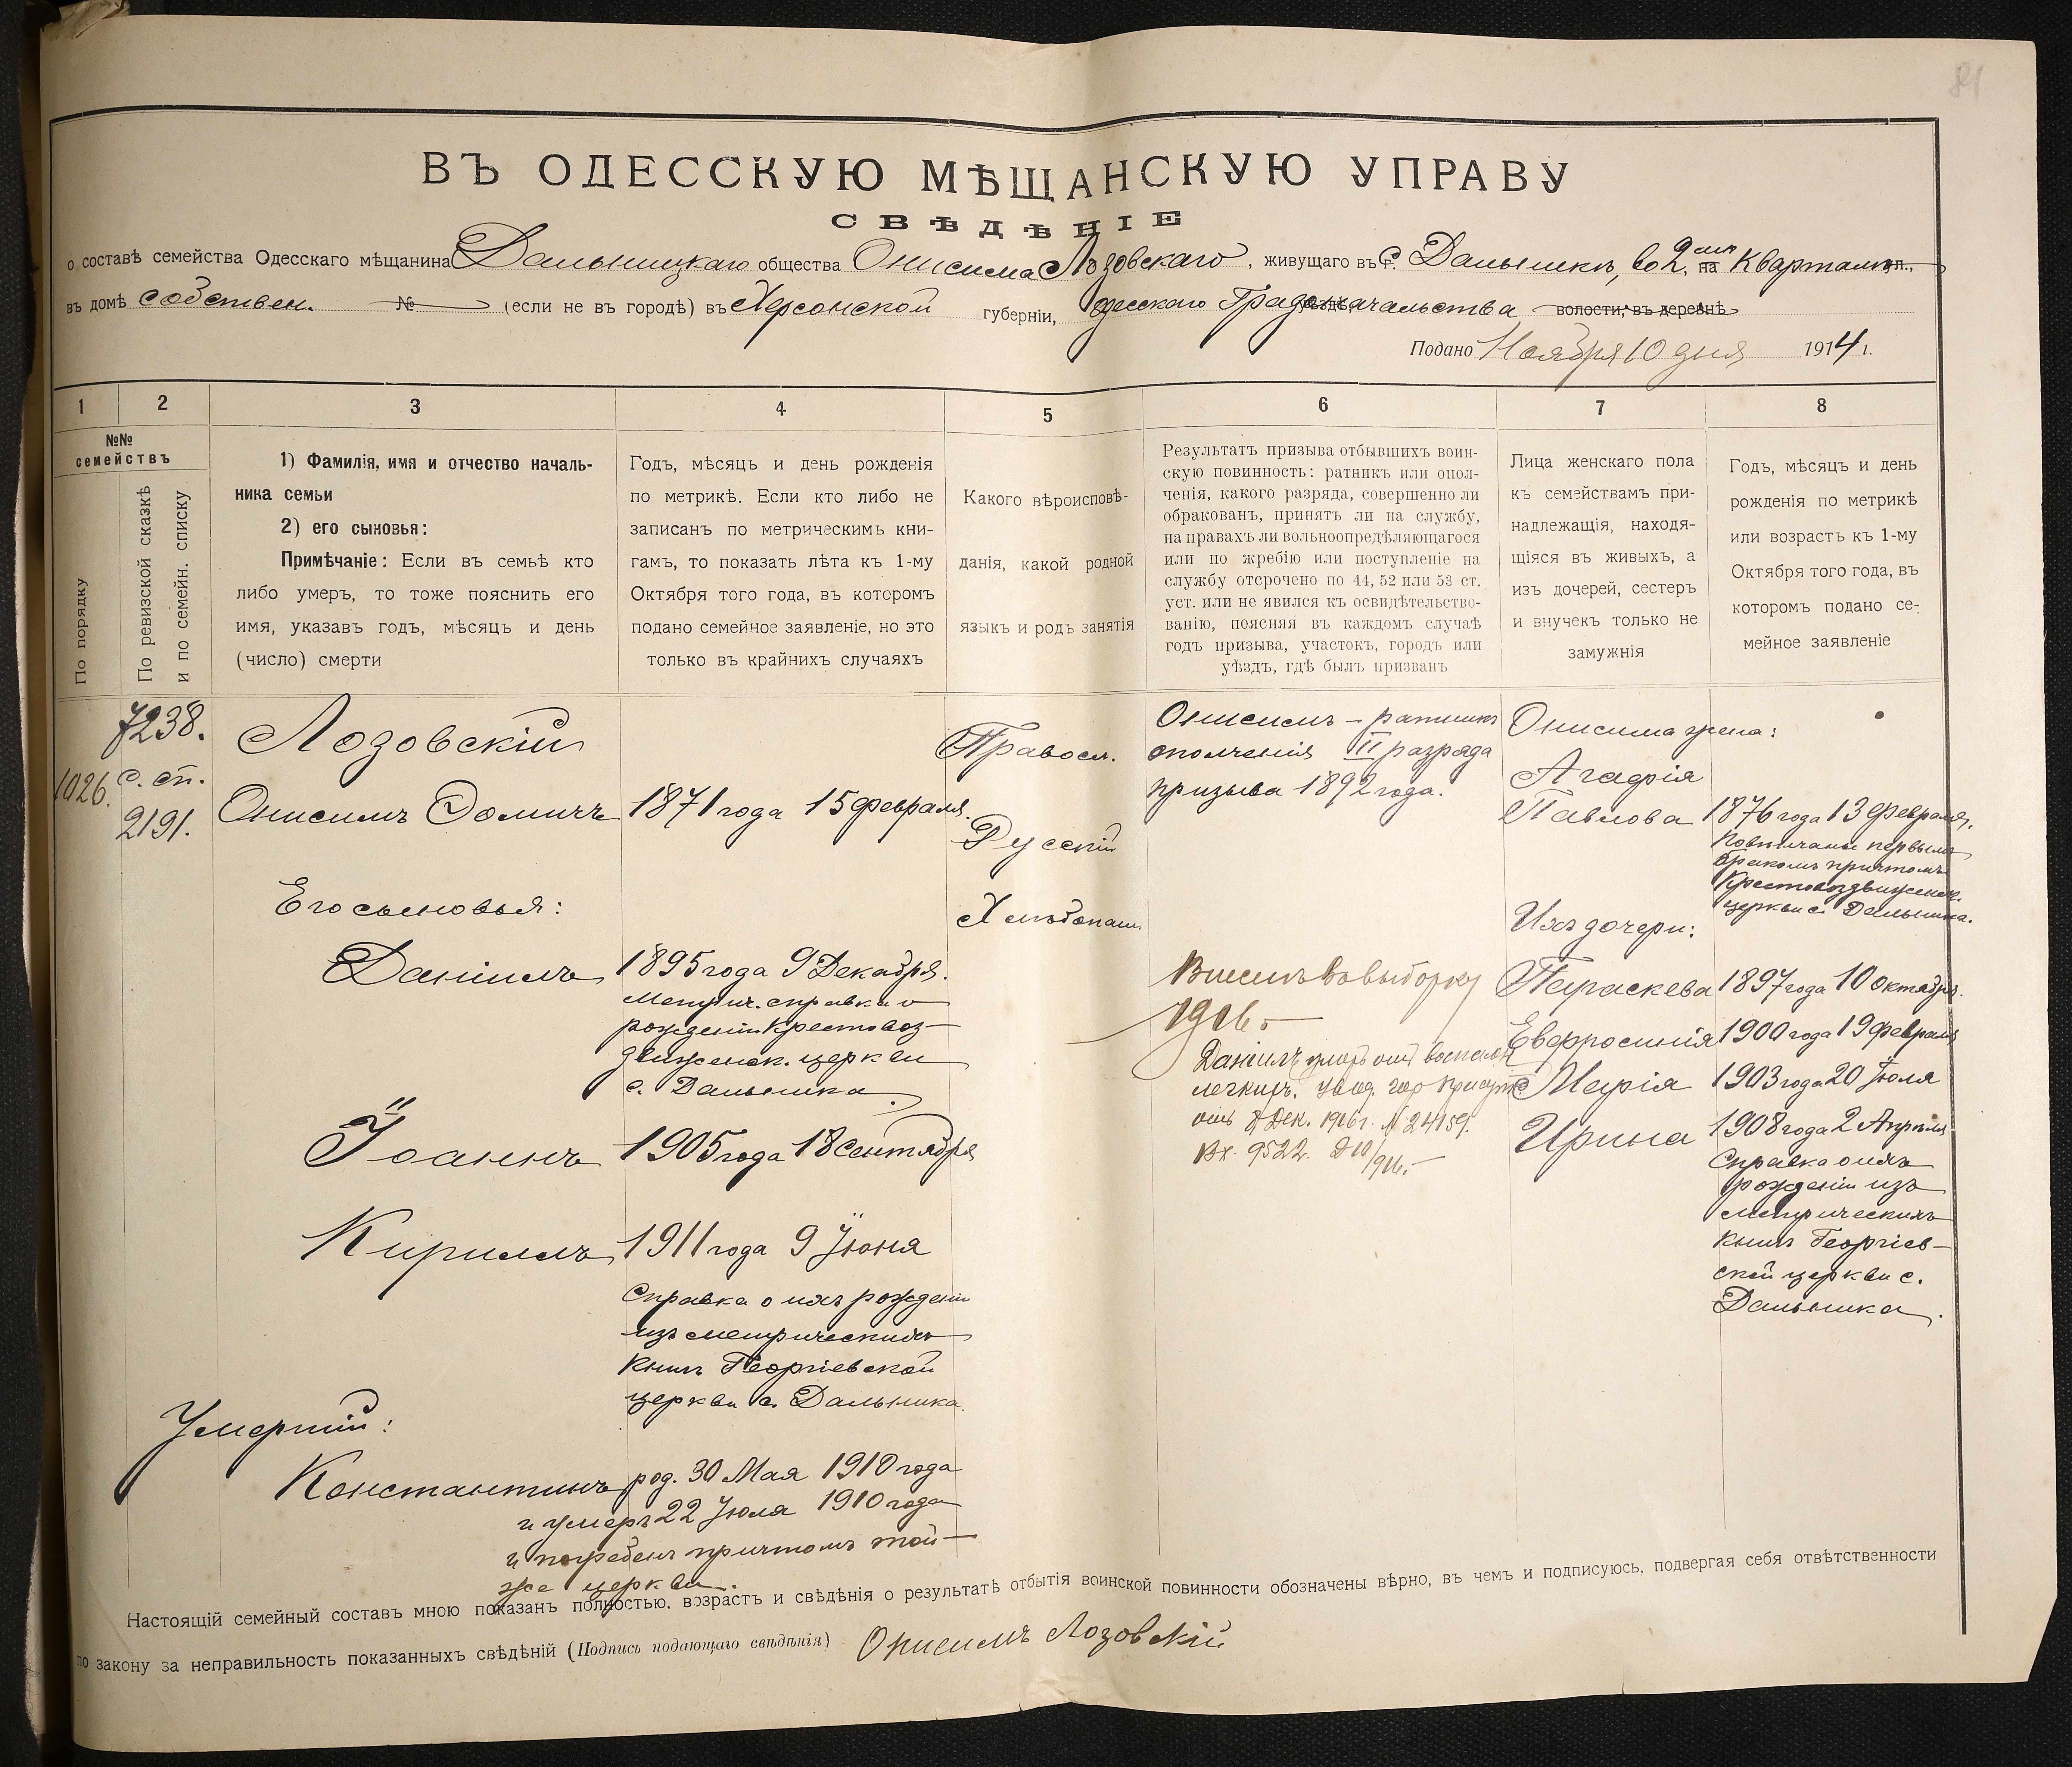 81
ВЪ ОДЕССКУЮ МѢЩАНСКУЮ УПРАВУ
СВѢДѢНІЕ
о составѣ семейства Одесскаго мѣщанина Дальницкаго общества Онисима Лозовскаго, живущаго въ с. Дальникѣ, во 2.мъ на Кварталѣ ул.,
въ домѣ собствен. № (если не въ городѣ) въ Херсонской губерніи, Одесскаго Градоначальства уѣзда, волости, въ деревнѣ
Подано Ноября 10 дня 1914 г.
1 2 3 4 5 6 7 8
№№
семействъ
По порядку
По ревизской сказкѣ
и по семейн. списку
1) Фамилія, имя и отчество началь-
ника семьи
2) его сыновья:
Примѣчаніе: Если въ семьѣ кто
либо умеръ, то тоже пояснить его
имя, указавъ годъ, мѣсяцъ и день
(число) смерти
Годъ, мѣсяцъ и день рожденія
по метрикѣ. Если кто либо не
записанъ по метрическимъ кни-
гамъ, то показать лѣта къ 1-му
Октября того года, въ которомъ
подано семейное заявленіе, но это
только въ крайнихъ случаяхъ
Какого вѣроисповѣ-
данія, какой родной
языкъ и родъ занятія
Результатъ призыва отбывшихъ воин-
скую повинность: ратникъ или опол-
ченія, какого разряда, совершенно ли
обракованъ, принятъ ли на службу,
на правахъ ли вольноопредѣляющагося
или по жребію или поступленіе на
службу отсрочено по 44, 52 или 53 ст.
уст. или не явился къ освидѣтельство-
ванію, поясняя въ каждомъ случаѣ
годъ призыва, участокъ, городъ или
уѣздъ, гдѣ былъ призванъ
Лица женскаго пола
къ семействамъ при-
надлежащія, находя-
щіяся въ живыхъ, а
изъ дочерей, сестеръ
и внучекъ только не
замужнія
Годъ, мѣсяцъ и день
рожденія по метрикѣ
или возрастъ къ 1-му
Октября того года, въ
которомъ подано се-
мейное заявленіе
1026.
7238.
с. сп.
2191.
Лозовскій
Онисимъ Домичъ
Его сыновья:
Даніилъ
Іоаннъ
Кириллъ
Умершій:
Константинъ
1871 года 15 февраля.
1895 года 9 Декабря.
Метрич. справка о
рожденіи Крестовоз-
движенск. церкви
с. Дальника.
1905 года 18 Сентября
1911 года 9 Іюня
Справка о ихъ рожденіи
изъ метрическихъ
книгъ Георгіевской
церкви с. Дальника.
род. 30 Мая 1910 года
и умеръ 22 Іюля 1910 года
и погребенъ причтомъ той-
же церкви.
Правосл.
Русскій
Хлѣбопаш.
Онисимъ - ратникъ
ополченія II разряда
призыва 1892 года.
Внесенъ во выборку
1916.-
Даніилъ умеръ отъ воспален.
легкихъ.
отъ 8 Дек. 1916 г. № 24159.
Вх. 9522.
Онисима жена:
Агафія
Павлова
Ихъ дочери:
Параскева
Евфросинія
Марія
Ирина
1876 года 13 февраля.
Повѣнчаны первымъ
бракомъ причтомъ
Крестовоздвиженск.
церкви с. Дальника.
1897 года 10 октября.
1900 года 19 февраля
1903 года 20 Іюля
1908 года 2 Апрѣля.
Справка о ихъ
рожденіи изъ
метрическихъ
книгъ Георгіев-
ской церкви с.
Дальника.
Настоящій семейный составъ мною показанъ полностью, возрастъ и свѣдѣнія о результатѣ отбытія воинской повинности обозначены вѣрно, въ чемъ и подписуюсь, подвергая себя отвѣтственности
по закону за неправильность показанныхъ свѣдѣній (Подпись подающаго свѣдѣнія) Онисимъ Лозовскій